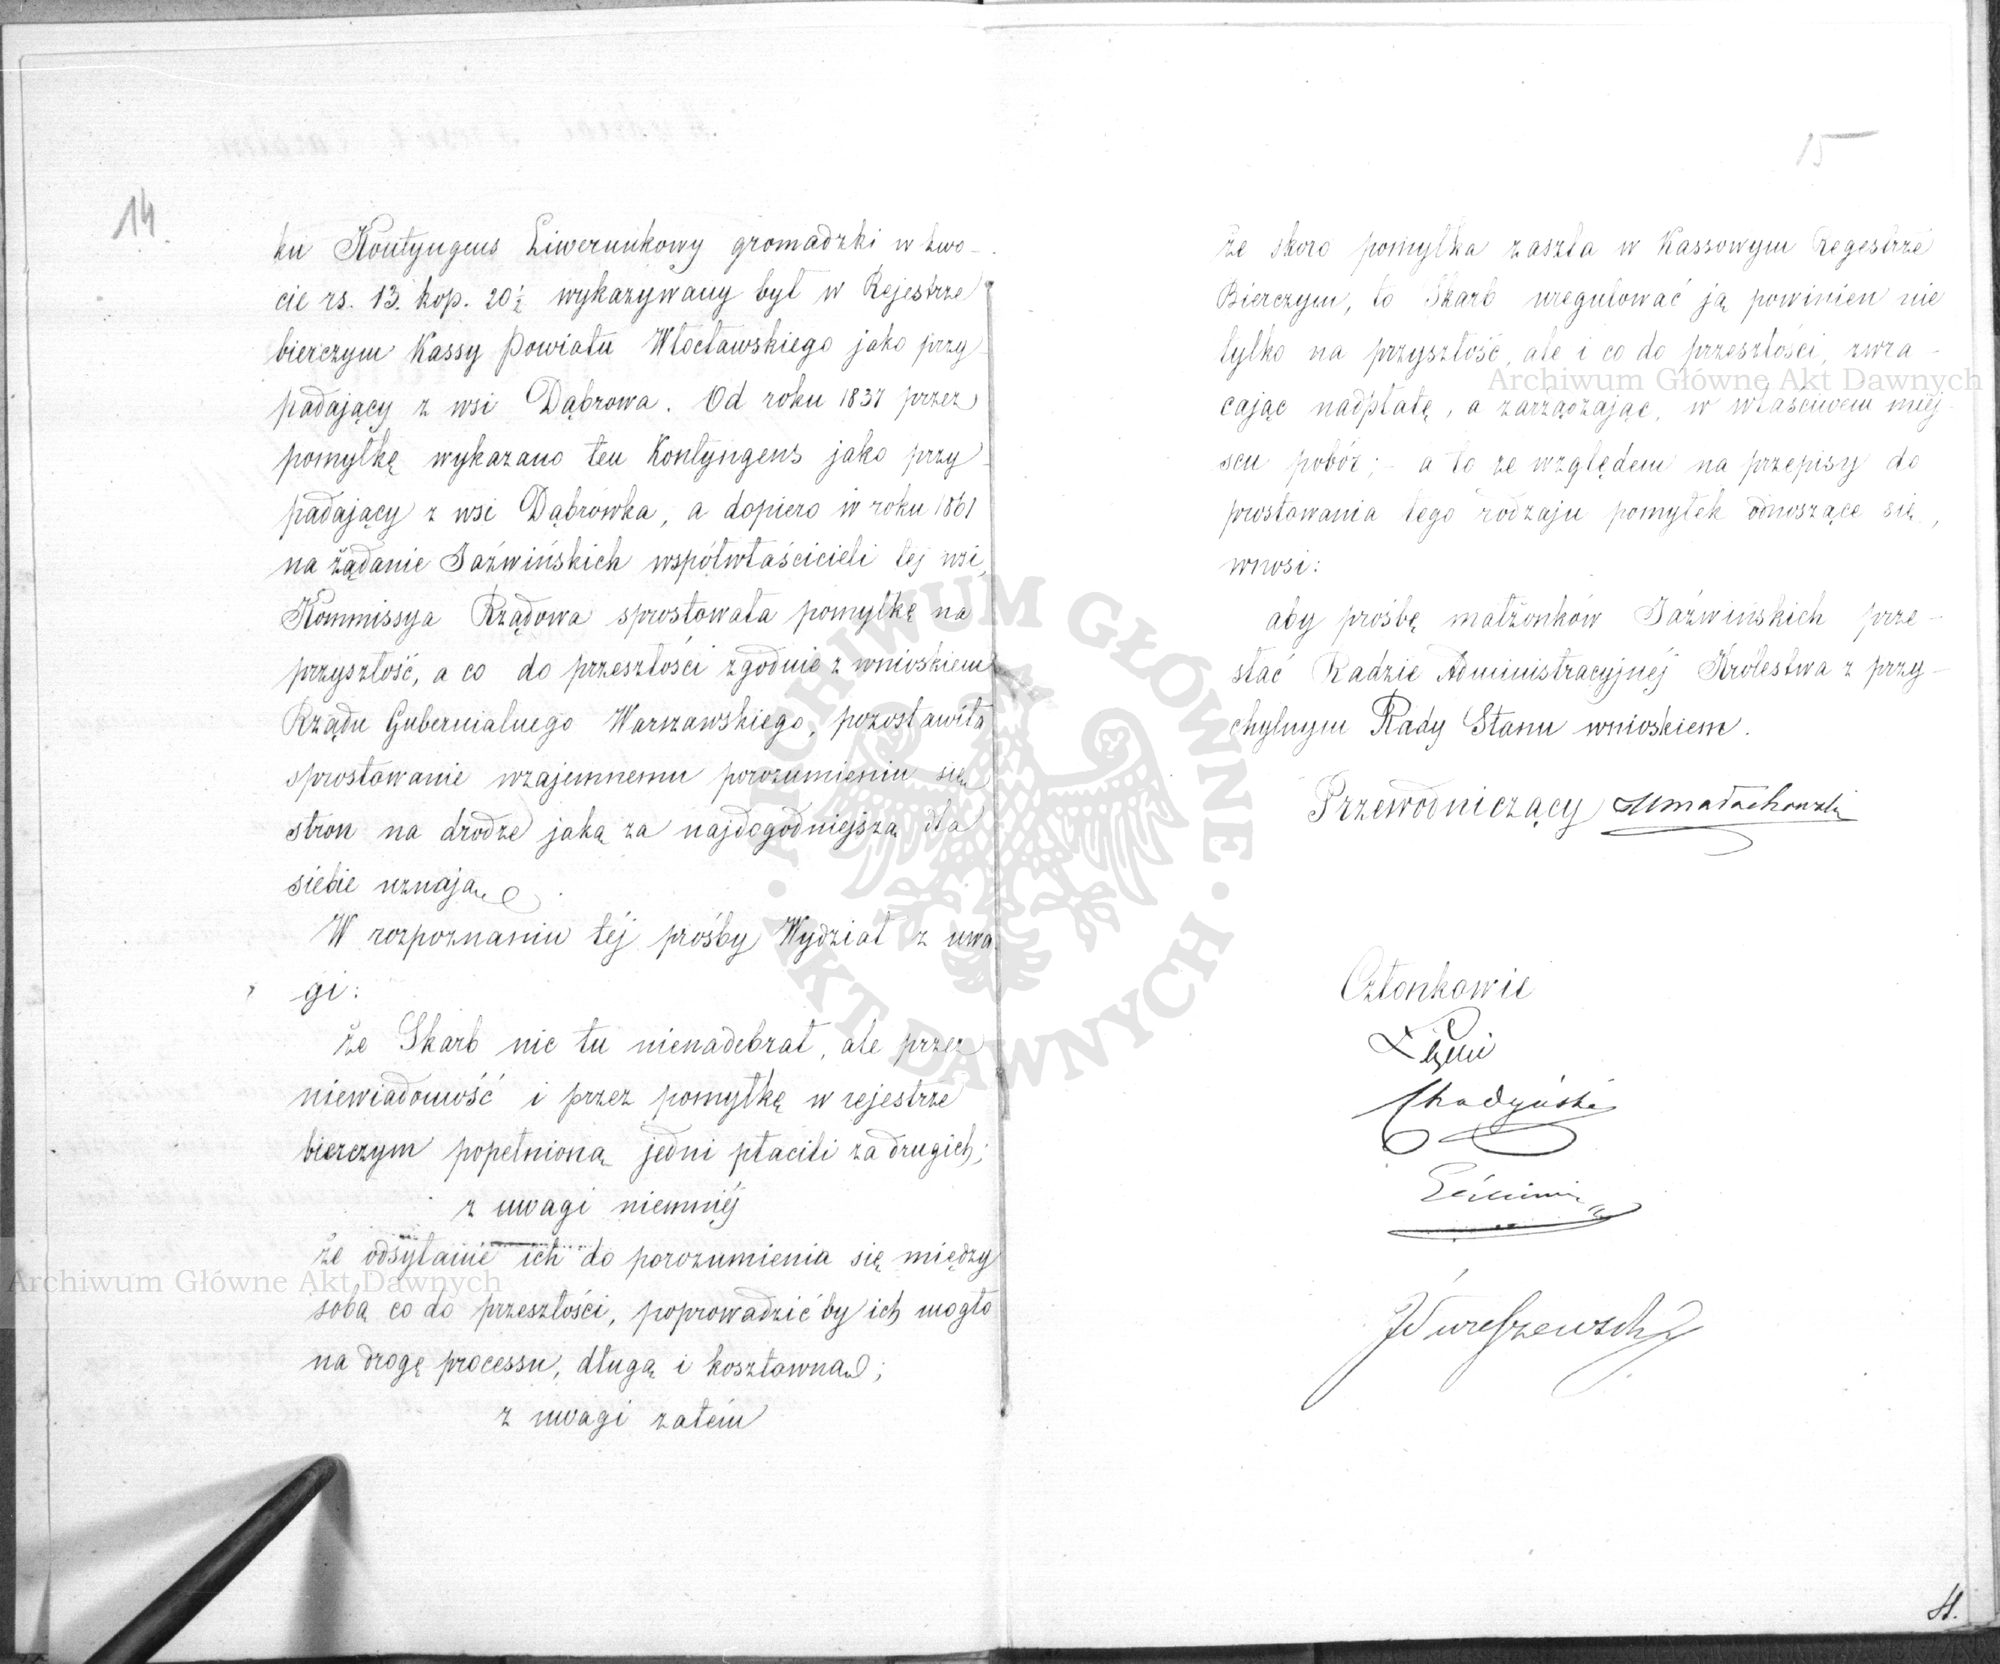 14.
ku Kontyngens Liwerunkowy gromadzki w kwo-
cie rs. 13. kop. 20½ wykazywany był w Rejestrze
bierczym Kassy Powiatu Włocławskiego jako przy
padający z wsi Dąbrowa. Od roku 1837 przez
pomyłkę wykazano ten Kontyngens jako przy
padający z wsi Dąbrówka, a dopiero w roku 1861
na żądanie Jaźwińskich współwłaścicieli tej wsi,
Kommissya Rządowa sprostowała pomyłkę na
przyszłość, a co do przeszłości zgodnie z wnioskiem
Rządu Gubernialnego Warszawskiego, pozostawiła
sprostowanie wzajemnemu porozumieniu się
stron na drodze jaką za najdogodniejszą dla
siebie uznają.
W rozpoznaniu téj prośby Wydział z uwa
gi:
że Skarb nic tu nienadebrał, ale przez
niewiadomość i przez pomyłkę w rejestrze
bierczym popełnioną jedni płacili za drugich;
z uwagi niemniéj
że odsyłanie ich do porozumienia się między
sobą co do przeszłości, poprowadzić by ich mogło
na drogę processu, długą i kosztowną;
z uwagi zatém
15
że skoro pomyłka zaszła w Kassowym Regestrze
Bierczym, to Skarb uregulować ją powinien nie
tylko na przyszłość, ale i co do przeszłości, zwra-
cając nadpłatę, a zarządzając, w właściwem miej
scu pobór; - a to ze względem na przepisy do
prostowania tego rodzaju pomyłek odnoszące się,
wnosi:
aby prośbę małżonków Jaźwińskich prze-
słać Radzie Administracyjnéj Królestwa z przy-
chylnym Rady Stanu wnioskiem.
Przewodniczący Małachowski
Członkowie
Chądzyński
H.
Archiwum Główne Akt Dawnych
Archiwum Główne Akt Dawnych
ARCHIWUM GŁÓWNE · AKT DAWNYCH ·